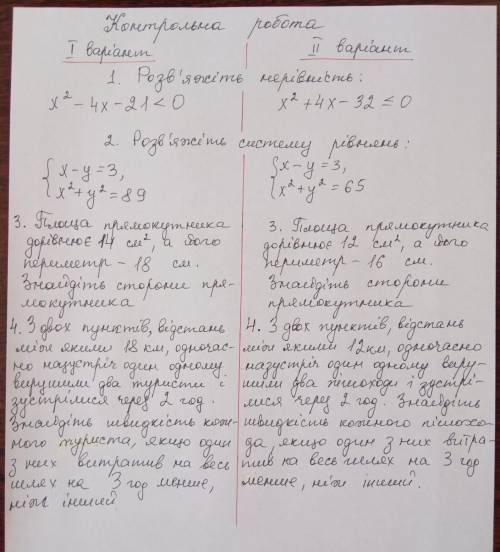 Контрольна робота
I варіант
II варіант
1. Розв'яжіть нерівність:
x² - 4x - 21 < 0
x² + 4x - 32 ≤ 0
2. Розв'яжіть систему рівнянь:
{ x - y = 3,
x² + y² = 89
{ x - y = 3,
x² + y² = 65
3. Площа прямокутника
дорівнює 14 см², а його
периметр - 18 см.
Знайдіть сторони пря-
мокутника
3. Площа прямокутника
дорівнює 12 см², а його
периметр - 16 см.
Знайдіть сторони
прямокутника
4. З двох пунктів, відстань
між якими 18 км, одночас-
но назустріч один одному
вирушили два туристи і
зустрілися через 2 год.
Знайдіть швидкість кож-
ного туриста, якщо один
з них витратив на весь
шлях на 3 год менше,
ніж інший.
4. З двох пунктів, відстань
між якими 12км, одночасно
назустріч один одному виру-
шили два пішоходи і зустрі-
лися через 2 год. Знайдіть
швидкість кожного пішохо-
да, якщо один з них витра-
тив на весь шлях на 3 год
менше, ніж інший.